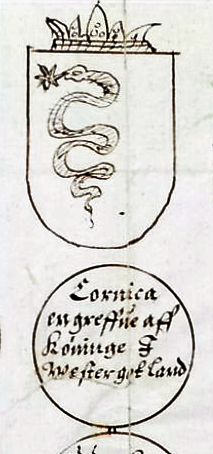 Cornica
en greffue aff
Köninge I
Westergotland